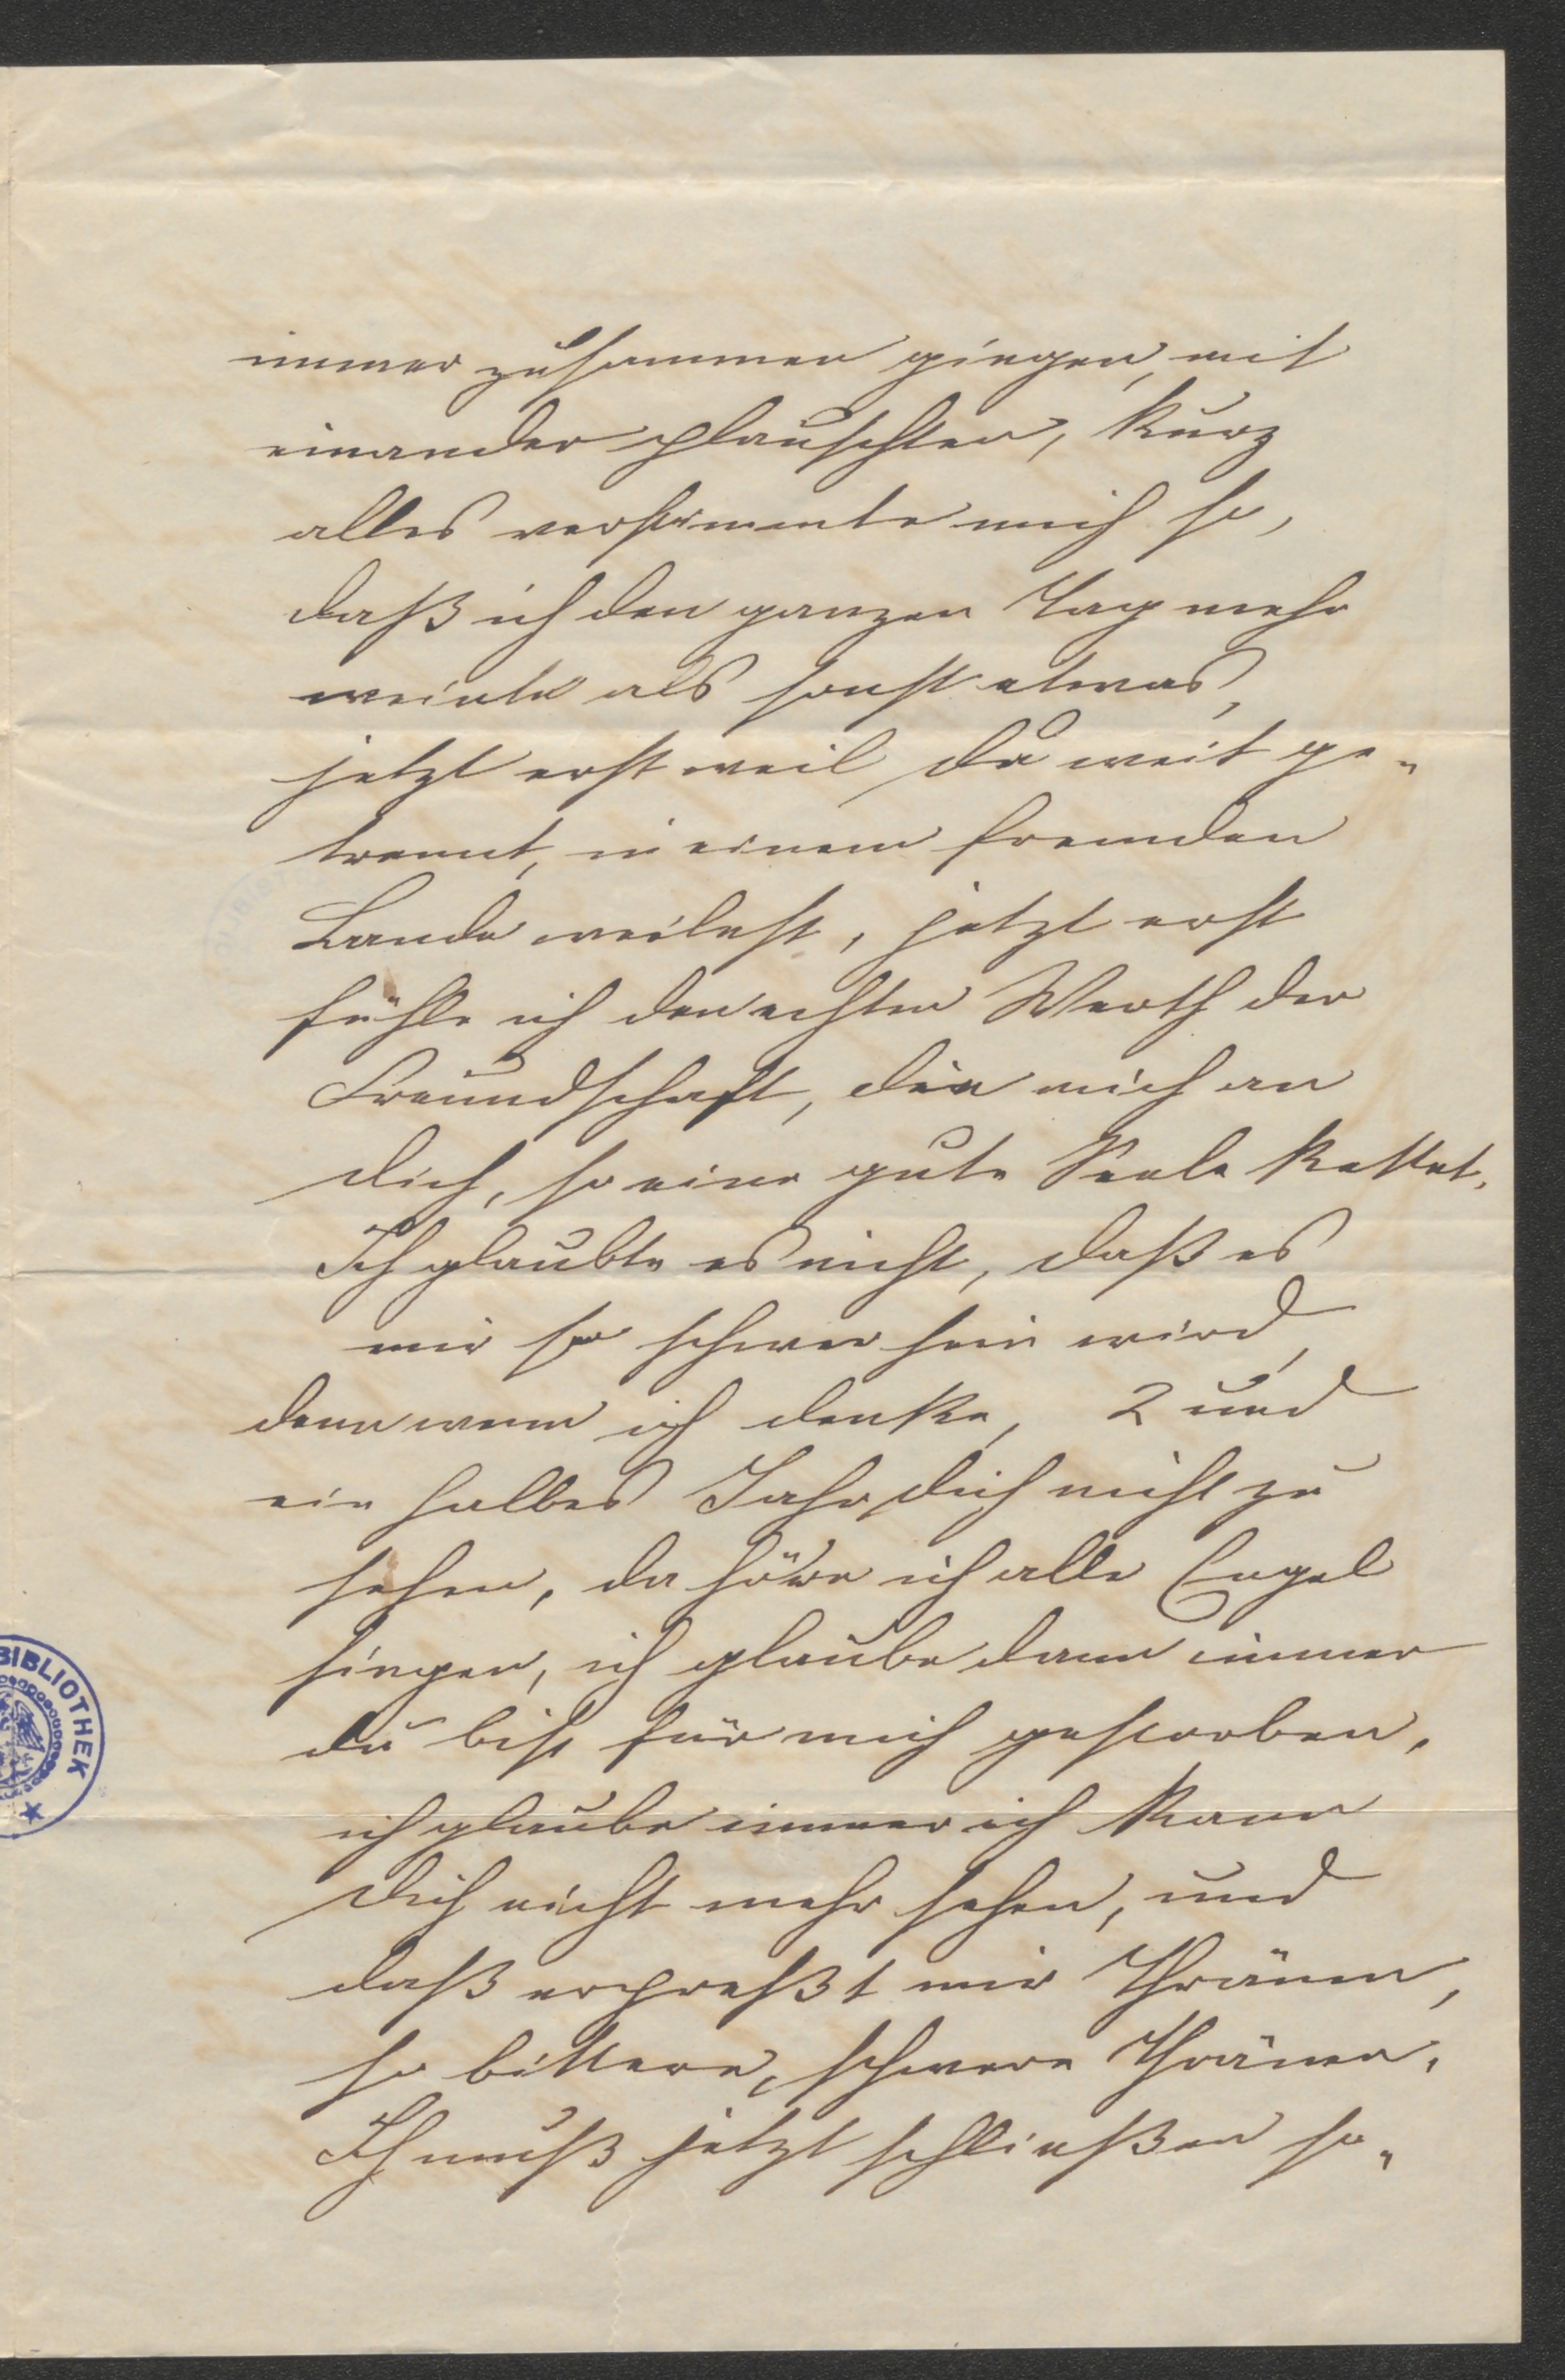 immer zusammen giengen, mit
einander plauschten, kurz
alles verstimmte mich so,
daß ich den ganzen Tag mehr
weinte als sonst etwas,
jetzt erst weil du weit ge„
trennt, in einem fremden
Lande weilest, jetzt erst
fühle ich den echten Werth der
Freundschaft, die mich an
dich, so eine gute Seele kettet.
Ich glaubte es nicht, daß es
mir so schwer sein wird,
denn wenn ich denke, 2 und
ein halbes Jahr dich nicht zu
sehen, da höre ich alle Engel
singen, ich glaube dann immer
du bist für mich gestorben,
ich glaube immer ich kann
dich nicht mehr sehen, und
daß erpreßt mir Thränen,
so bittere, schwere Thränen.
Ich muß jetzt schließen so„
BIBLIOTHEK